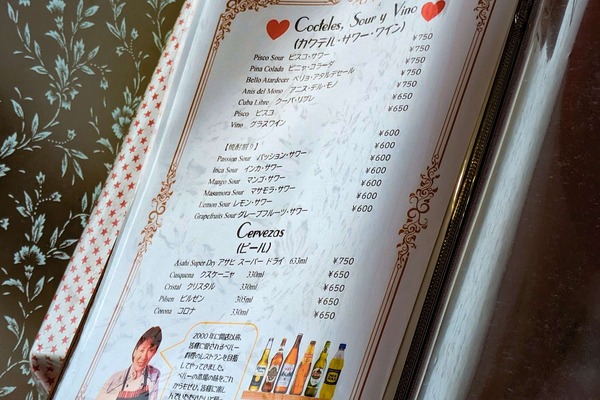 Cocteles, Sour y Vino
(カクテル・サワー・ワイン)
Pisco Sour ピスコ・サワー ¥750
Pina Colada ピニャ・コラーダ ¥750
Bello Atardecer ベリョ・アタルデセール ¥750
Anis del Mono アニス・デル・モノ ¥750
Cuba Libre クーバ・リブレ ¥750
Pisco ピスコ ¥650
Vino グラスワイン ¥650
【焼酎割り】 ¥600
Passion Sour パッション・サワー ¥600
Inca Sour インカ・サワー ¥600
Mango Sour マンゴ・サワー ¥600
Masamora Sour マサモラ・サワー ¥600
Lemon Sour レモン・サワー ¥600
Grapefruits Sour グレープフルーツ・サワー ¥600
Cervezas
(ビール)
Asahi Super Dry アサヒ スーパー ドライ 633ml ¥750
Cusquena クスケーニャ 330ml ¥650
Cristal クリスタル 330ml ¥650
Pilsen ピルゼン 305ml ¥650
Corona コロナ 330ml ¥650
2000年に開店以来、
皆様に愛されるペルー
料理のレストランを目指
してやってきました。
ペルーの本場の味をこれ
からもぜひ、皆様に楽し